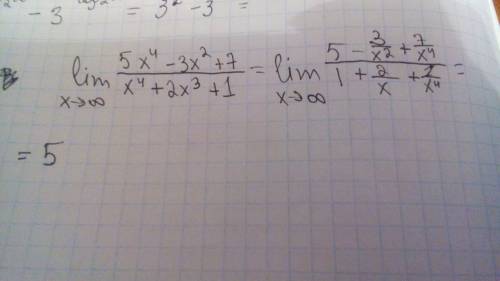 - 3 = 3² - 3 =
lim x→∞ (5x⁴ - 3x² + 7)/(x⁴ + 2x³ + 1) = lim x→∞ (5 - 3/x² + 7/x⁴)/(1 + 2/x + 1/x⁴) =
= 5